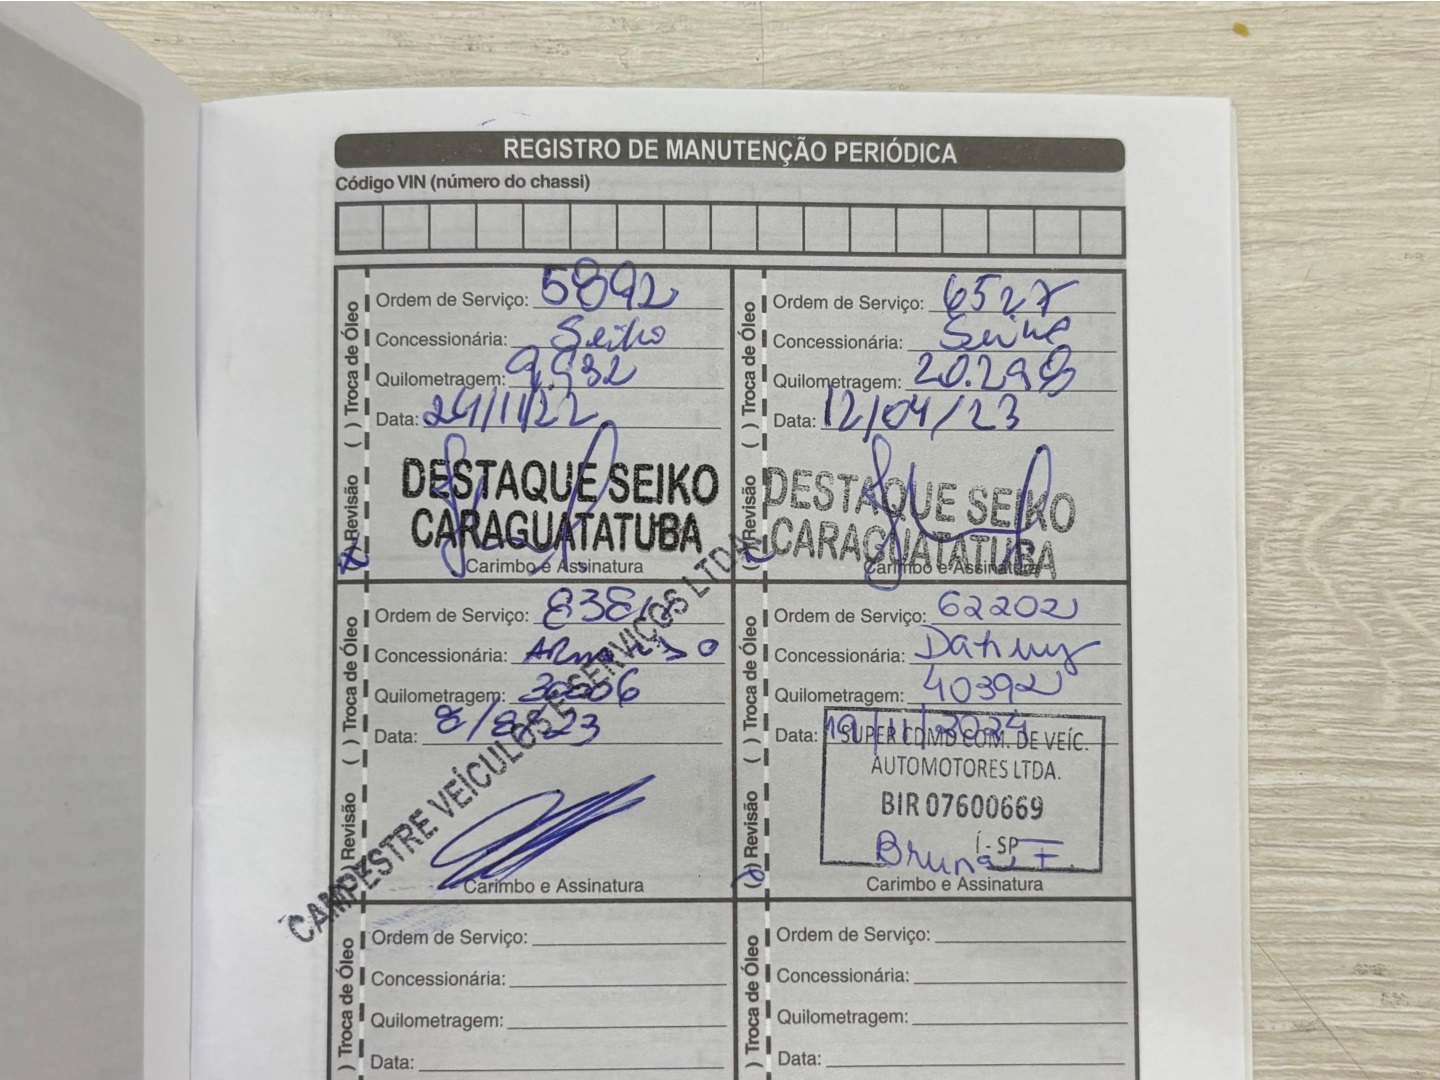 REGISTRO DE MANUTENÇÃO PERIÓDICA
Código VIN (número do chassi)
( ) Troca de Óleo
(x) Revisão
Ordem de Serviço: 5892
Concessionária: Seiko
Quilometragem: 9.932
Data: 24/11/22
DESTAQUE SEIKO
CARAGUATATUBA
Carimbo e Assinatura
( ) Troca de Óleo
(x) Revisão
Ordem de Serviço: 6527
Concessionária: Seiko
Quilometragem: 20.298
Data: 12/04/23
DESTAQUE SEIKO
CARAGUATATUBA
Carimbo e Assinatura
( ) Troca de Óleo
( ) Revisão
Ordem de Serviço:
Concessionária:
Quilometragem: 30006
Data: 8/8/23
CAMPESTRE VEÍCULOS E SERVIÇOS LTDA
Carimbo e Assinatura
( ) Troca de Óleo
( ) Revisão
Ordem de Serviço: 62202
Concessionária:
Quilometragem: 40392
Data: 19/11/2024
SUPER CDMD COM. DE VEÍC.
AUTOMOTORES LTDA.
BIR 07600669
Í - SP
Bruna F.
Carimbo e Assinatura
) Troca de Óleo
Ordem de Serviço:
Concessionária:
Quilometragem:
Data:
) Troca de Óleo
Ordem de Serviço:
Concessionária:
Quilometragem:
Data: